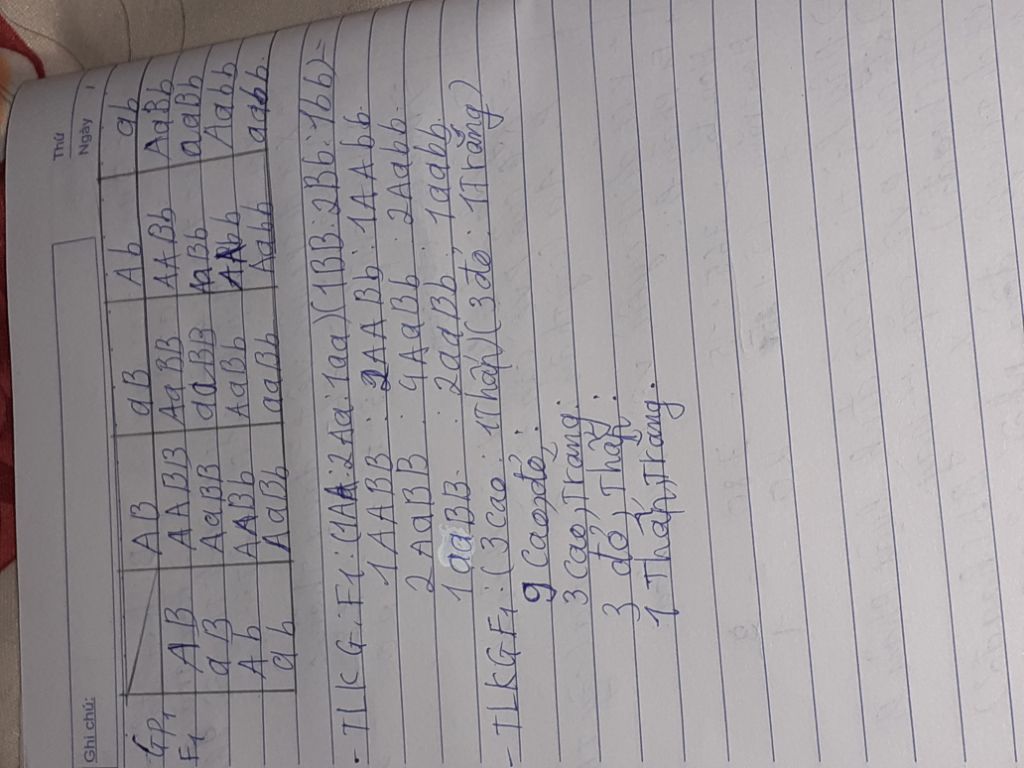 Thứ
Ngày /
Ghi chú:
GP1
F1
AB aB Ab ab
AB AABB AaBB AABb AaBb
aB AaBB aaBB AaBb aaBb
Ab AABb AaBb AAbb Aabb
ab AaBb aaBb Aabb aabb.
- TLKG: F1: (1AA: 2Aa: 1aa)(1BB: 2Bb: 1bb)=
1AABB : 2AABb : 1AAbb.
2AaBB : 4AaBb : 2Aabb.
1aaBB : 2aaBb : 1aabb.
- TLKGF1: (3cao : 1Thấp)(3đỏ : 1Trắng)
9 Cao, đỏ :
3 cao, Trắng :
3 đỏ, Thấp :
1 Thấp, Trắng.